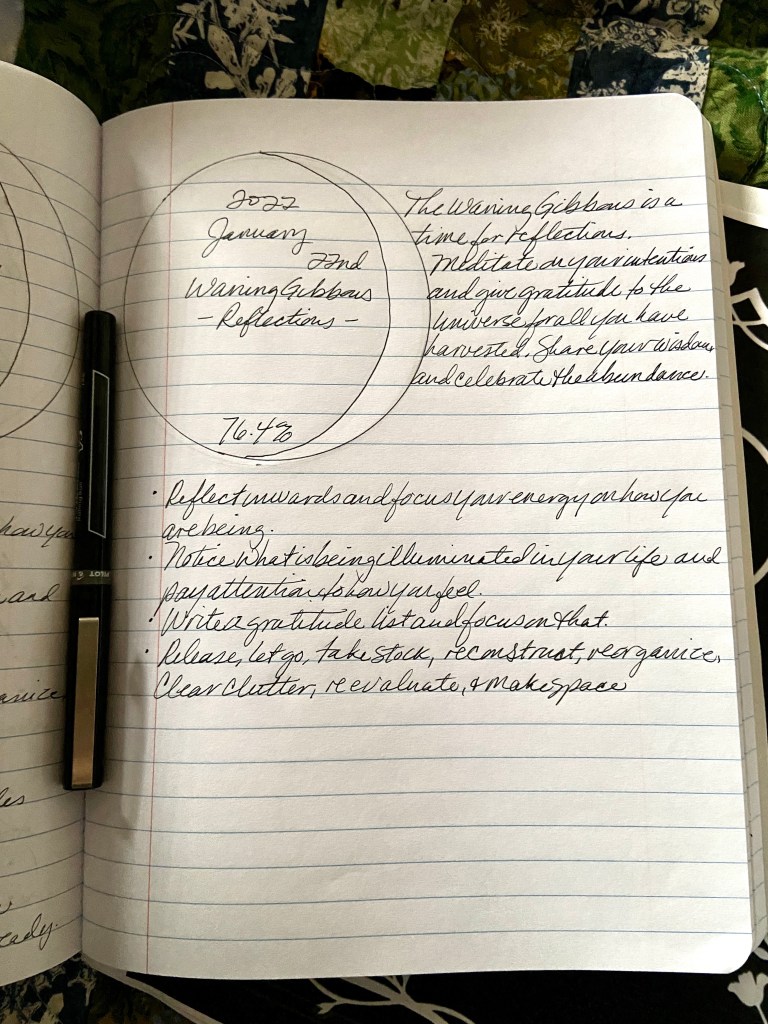 2022
January
22nd
Waning Gibbous
- Reflections -
76.4%
The Waning Gibbous is a
time for reflections.
Meditate on your intentions
and give gratitude to the
Universe for all you have
harvested. Share your wisdom,
and celebrate the abundance.
• Reflect inwards and focus your energy on how you
are being.
• Notice what is being illuminated in your life and
pay attention to how you feel.
• Write a gratitude list and focus on that.
• Release, let go, take stock, reconstruct, reorganize,
Clear Clutter, reevaluate, & make space
how you
and
PILOT